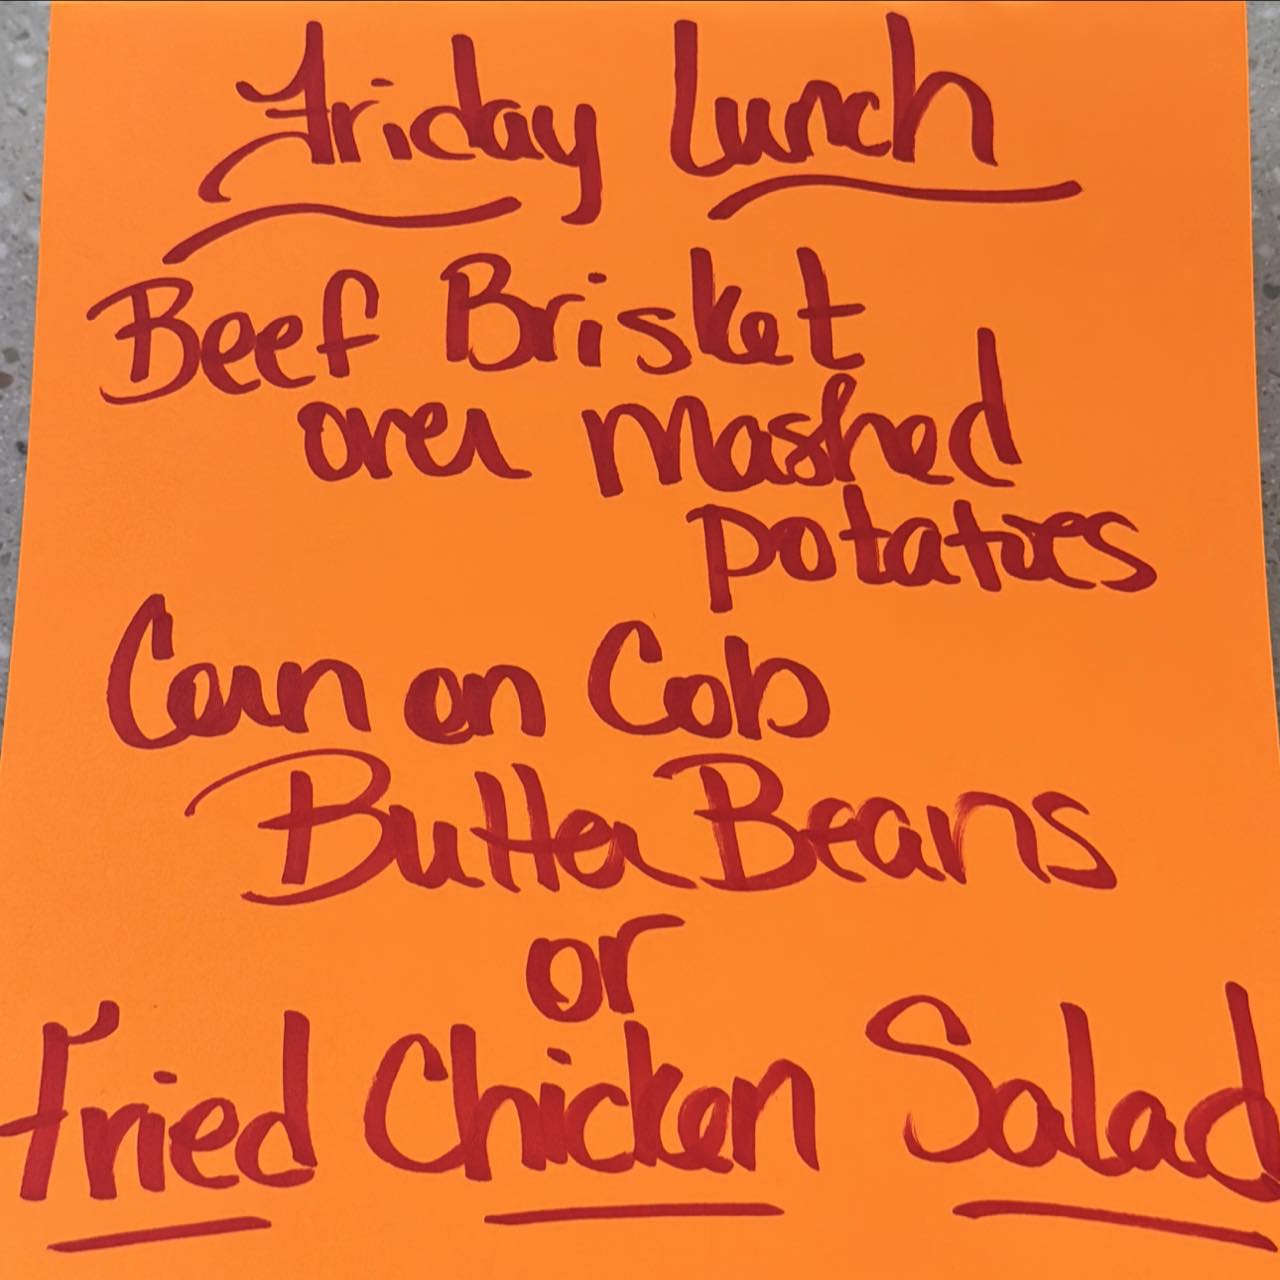 Friday Lunch
Beef Brisket
over mashed
potatoes
Corn on Cob
Butter Beans
or
Fried Chicken Salad